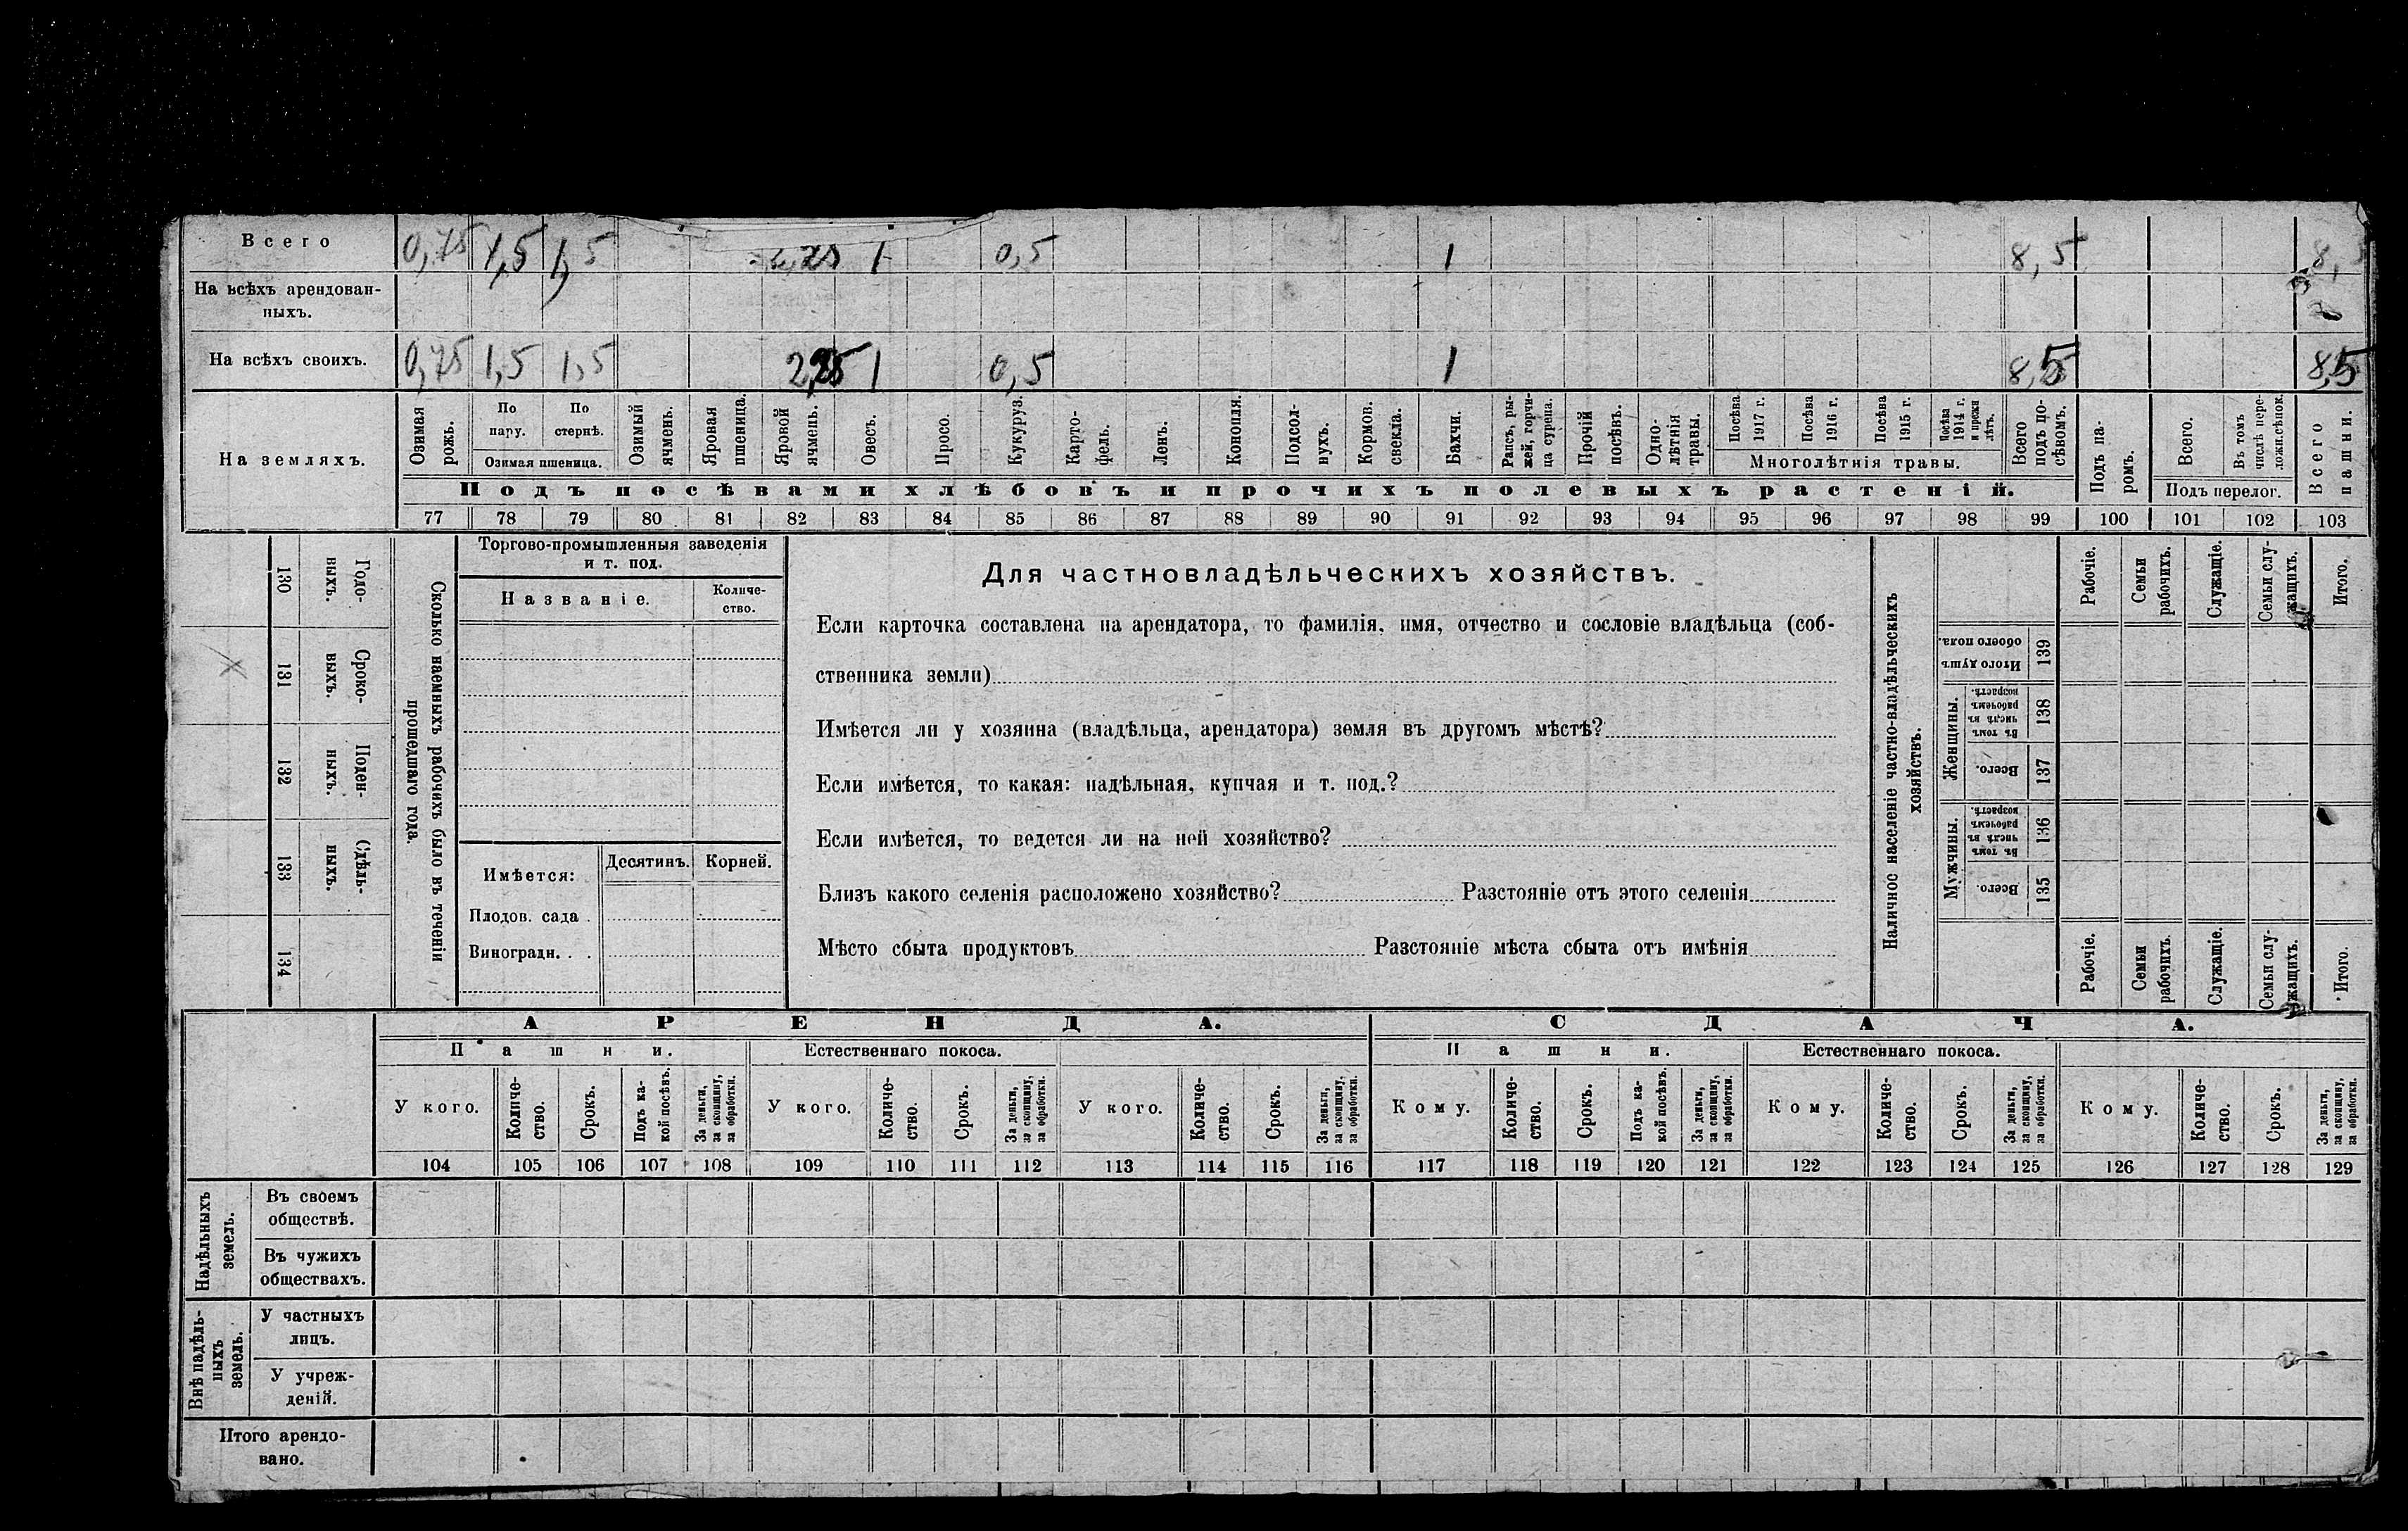 Всего 0,75 1,5 1,5 2,25 1 0,5 1 8,5 8,5
На всѣхъ арендован-
ныхъ.
На всѣхъ своихъ. 0,75 1,5 1,5 2,25 1 0,5 1 8,5 8,5
На земляхъ.
Озимая рожь.
По пару.
По стернѣ.
Озимая пшеница.
Озимый ячмень.
Яровая пшеница.
Яровой ячмень.
Овесъ.
Просо.
Кукуруз.
Карто-
фель.
Ленъ.
Конопля.
Подсол-
нухъ.
Кормов.
свекла.
Бахчи.
Рапсъ, ры-
жей, горчи-
ца сурепа.
Прочій
посѣвъ.
Одно-
лѣтнія
травы.
Посѣва 1917 г.
Посѣва 1916 г.
Посѣва 1915 г.
Посѣва 1914 г. и прежн лѣтъ.
Многолѣтнія травы.
Всего подъ по-
сѣвомъ.
Подъ па-
ромъ.
Всего.
Въ томъ числѣ пере-
ложн.сѣнок.
Подъ перелог.
Всего пашни.
Подъ посѣвами хлѣбовъ и прочихъ полевыхъ растеній.
77 78 79 80 81 82 83 84 85 86 87 88 89 90 91 92 93 94 95 96 97 98 99 100 101 102 103
130 Годо-
выхъ.
131 Сроко-
выхъ.
132 Поден-
ныхъ.
133 Сдѣль-
ныхъ.
134
Сколько наемныхъ рабочихъ было въ теченіи
прошедшаго года.
Торгово-промышленныя заведенія
и т. под.
Названіе.
Количе-
ство.
Имѣется: Десятинъ. Корней.
Плодов. сада .
Виноградн. . .
Для частновладѣльческихъ хозяйствъ.
Если карточка составлена на арендатора, то фамилія, имя, отчество и сословіе владѣльца (соб-
ственника земли)
Имѣется ли у хозяина (владѣльца, арендатора) земля въ другомъ мѣстѣ?
Если имѣется, то какая: надѣльная, купчая и т. под.?
Если имѣется, то ведется ли на ней хозяйство?
Близъ какого селенія расположено хозяйство? Разстояніе отъ этого селенія
Мѣсто сбыта продуктовъ Разстояніе мѣста сбыта отъ имѣнія
Наличное населеніе частно-владѣльческихъ
хозяйствъ.
Рабочіе.
Семьи рабочихъ.
Служащіе.
Семьи слу-
жащихъ.
Итого.
Итого душъ обоего пола. 139
Женщины.
Въ томъ числѣ въ рабочемъ возрастѣ. 138
Всего. 137
Мужчины.
Въ томъ числѣ въ рабочемъ возрастѣ. 136
Всего. 135
Рабочіе.
Семьи рабочихъ.
Служащіе.
Семьи слу-
жащихъ.
Итого.
АРЕНДА. СДАЧА.
Пашни. Естественнаго покоса. Пашни. Естественнаго покоса.
У кого. Количе-
ство. Срокъ. Подъ ка-
кой посѣвъ. За деньги, за скопщину, за обработки.
У кого. Количе-
ство. Срокъ. За деньги, за скопщину, за обработки.
У кого. Количе-
ство. Срокъ. За деньги, за скопщину, за обработки.
Кому. Количе-
ство. Срокъ. Подъ ка-
кой посѣвъ. За деньги, за скопщину, за обработки.
Кому. Количе-
ство. Срокъ. За деньги, за скопщину, за обработки.
Кому. Количе-
ство. Срокъ. За деньги, за скопщину, за обработки.
104 105 106 107 108 109 110 111 112 113 114 115 116 117 118 119 120 121 122 123 124 125 126 127 128 129
Надѣльныхъ
земель.
Въ своемъ
обществѣ.
Въ чужихъ
обществахъ.
Внѣ надѣль-
ныхъ
земель.
У частныхъ
лицъ.
У учреж-
деній.
Итого арендо-
вано.